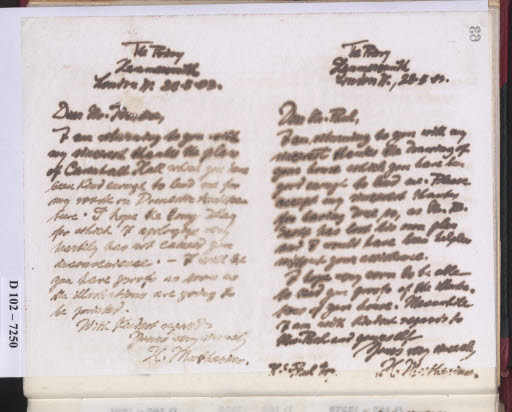 89
The Priory
Hammersmith
London W. 28-8-02.
I am returning to you with
my sincerest thanks the plans
of Hall which you have
been kind enough to lend me for
my work on Domestic Architec
ture. I hope the long delay
for which I apologize very
heartily has not caused you
inconvenience. - I will let
you have proofs as soon as
the illustrations are going to
be printed.
With kindest regards
Yours very sincerely
H. Muthesius.
The Priory
Hammersmith
London W., 28-8-02.
I am returning to you with my
sincerest thanks the drawing of
your house which you have been
good enough to lend me. Please
accept my sincerest thanks
for having done so, as Mr.
has lost his own plan
and I would have been helpless
without your assistance.
I hope very soon to be able
to send you proofs of the illustra
tions of your house. Meanwhile
I am with kindest regards to
and yourself
Yours very sincerely
H. Muthesius.
D 102 - 7250